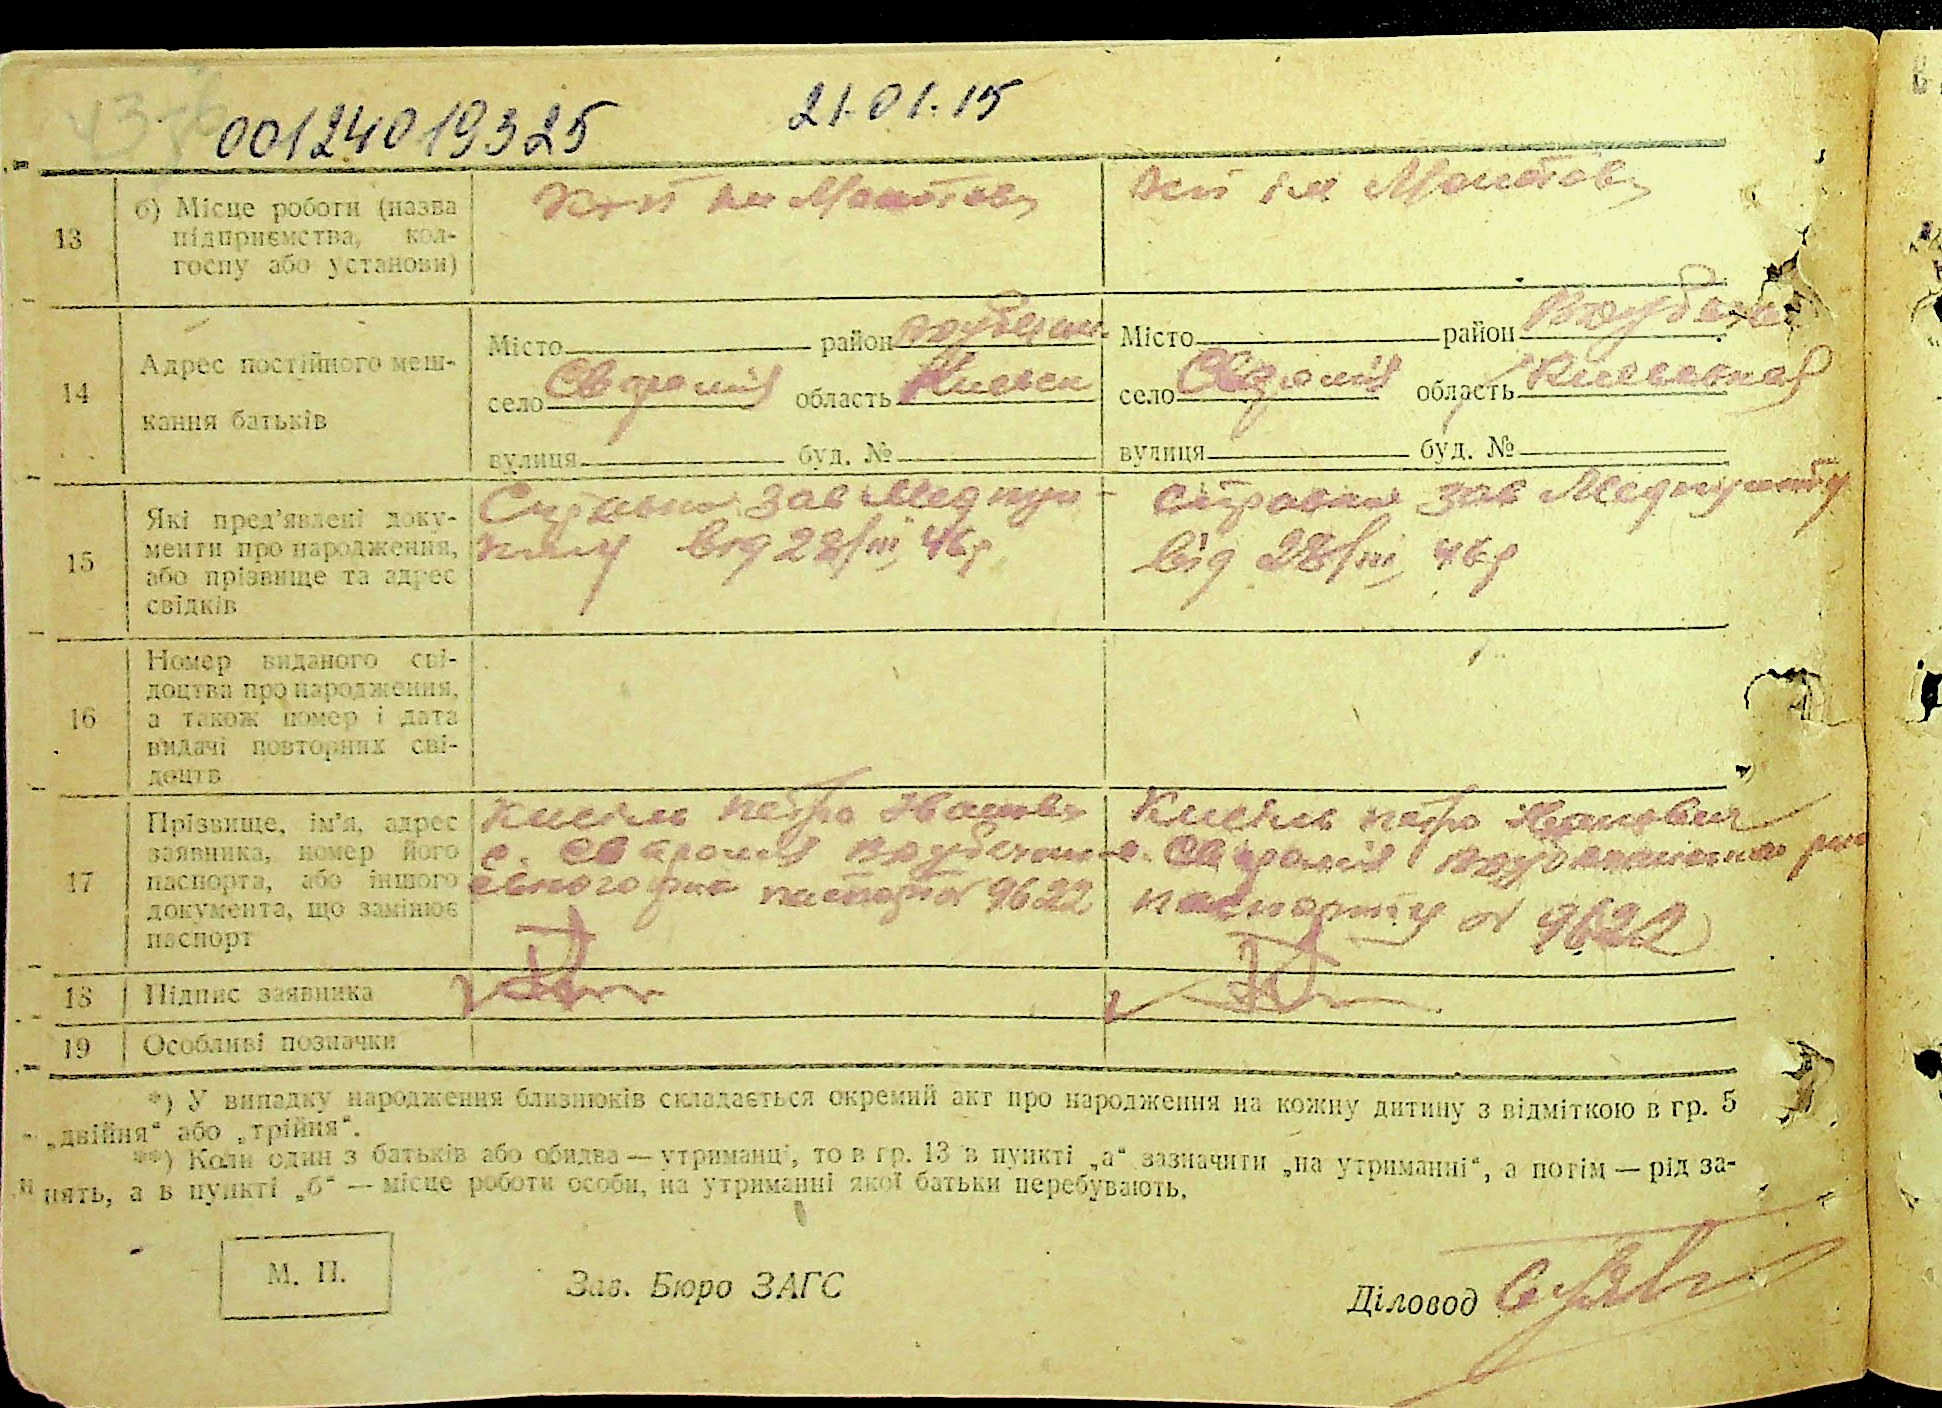 00124019325 21.01.15
13 б) Місце роботи (назва підприємства, кол-
госпу або установи)
ім Молотова ім Молотова
14 Адрес постійного меш-
кання батьків
Місто район Місто район
село область Киевск село область Киевская
вулиця буд. № вулиця буд. №
15 Які пред'явлені доку-
менти про народження,
або прізвище та адрес
свідків
Справка зав Медпун-
кту від 28/III 46р
Справка зав Медпункту
від 28/III 46р
16 Номер виданого сві-
доцтва про народження,
а також номер і дата
видачі повторних сві-
доцтв
17 Прізвище, ім'я, адрес
заявника, номер його
паспорта, або іншого
документа, що замінює
паспорт
Кисіль петро
с. паспорта № 9622
Кисіль петро Иванович
с.
паспорту № 9622
18 Підпис заявника
19 Особливі позначки
*) У випадку народження близнюків складається окремий акт про народження на кожну дитину з відміткою в гр. 5
„двійня“ або „трійня“.
**) Коли один з батьків або обидва — утриманці, то в гр. 13 в пункті „а“ зазначити „на утриманні“, а потім — рід за-
нять, а в пункті „б“ — місце роботи особи, на утриманні якої батьки перебувають.
М. П. Зав. Бюро ЗАГС Діловод